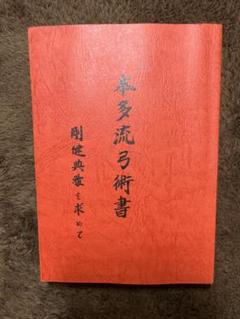 本多流弓術書
剛健典雅を求めて